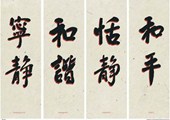 和平
恬静
和諧
寧靜